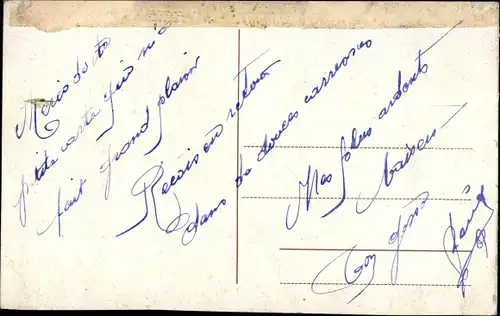 Merci de ta
petite carte qui m'a
fait grand plaisir
Reçois en retour
dans de douces carresses
Mes plus ardents
baisers
Ton gosse